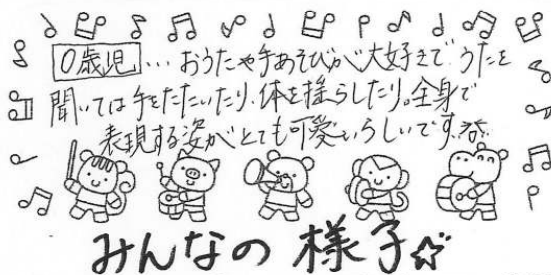 0歳児…おうたや手あそびが大好きで、うたを
聞いては手をたたいたり、体を揺らしたり。全身で
表現する姿がとても可愛いらしいです。
みんなの様子☆